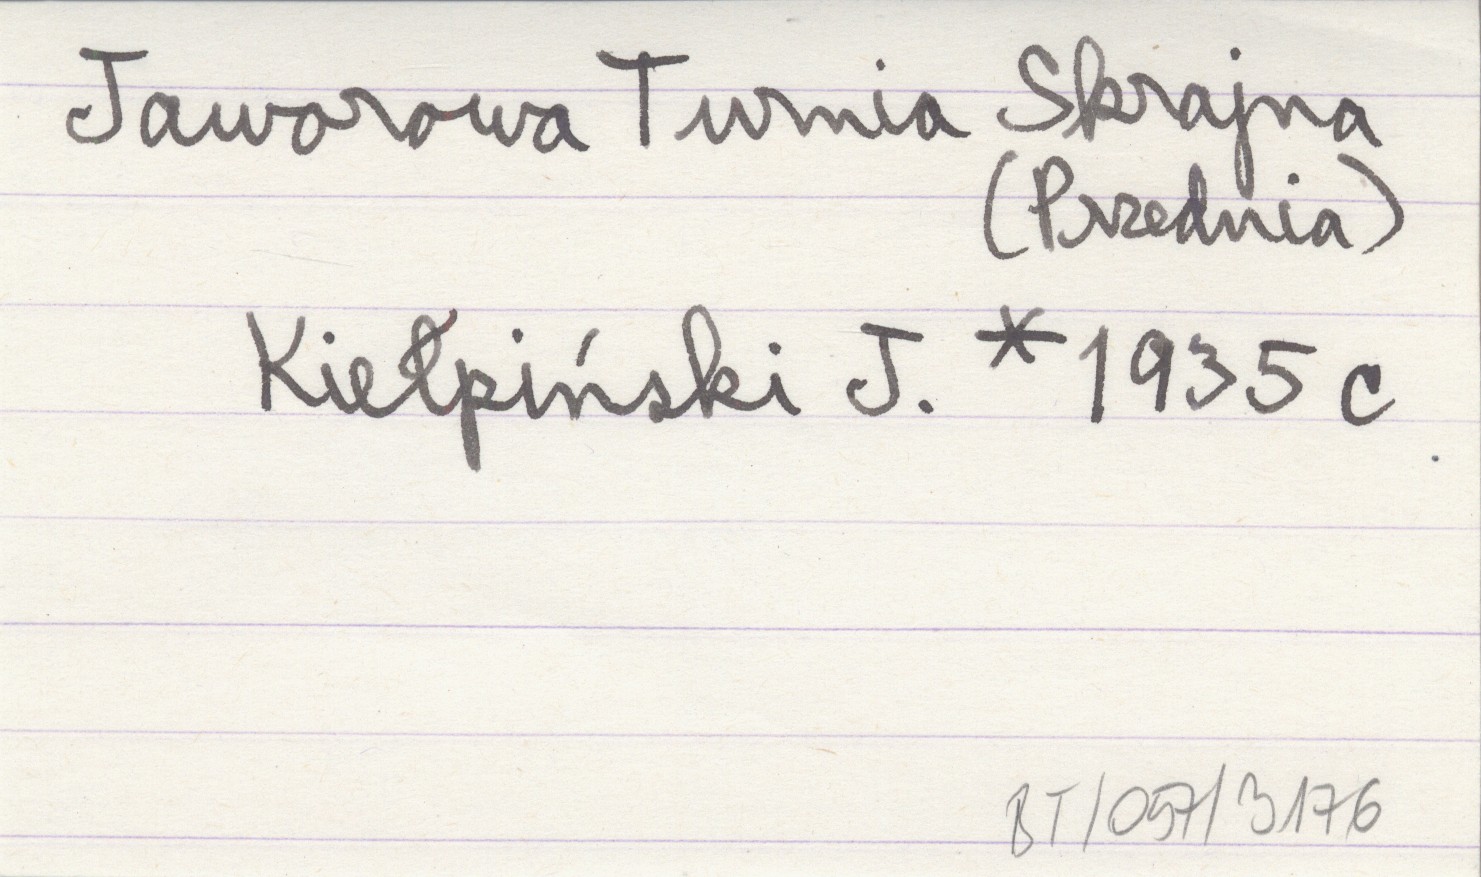 Jaworowa Turnia Skrajna
(Przednia)
Kiełpiński J. * 1935 c
BT/057/3176